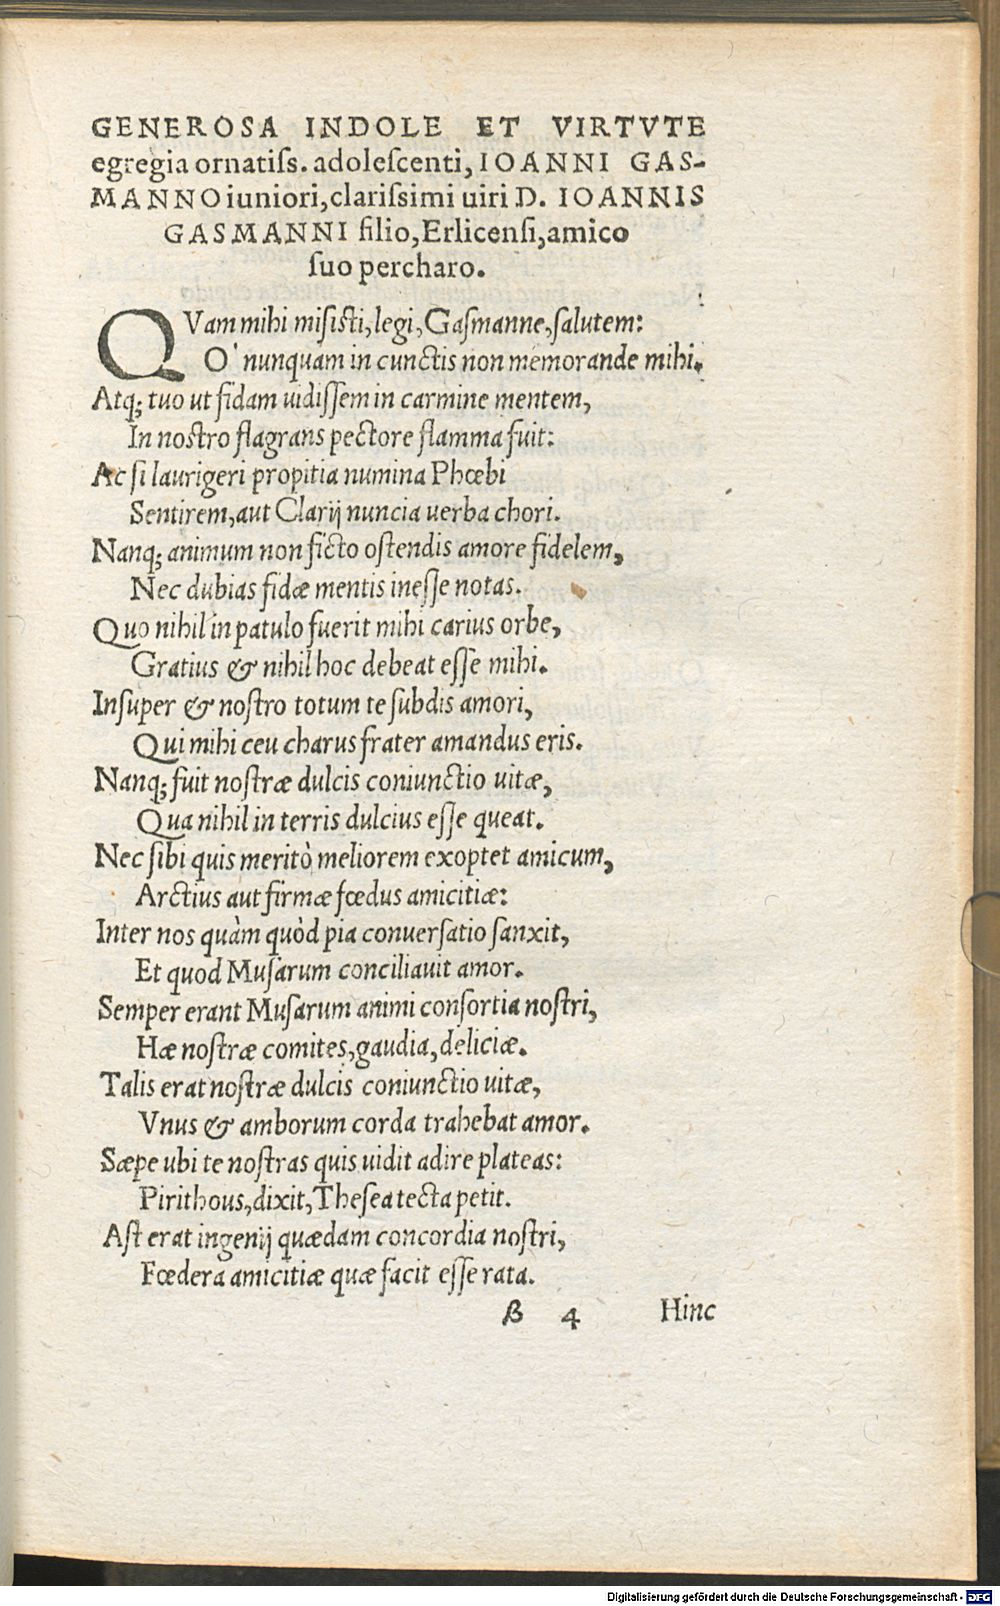 GENEROSA INDOLE ET VIRTVTE
egregia ornatiſs. adoleſcenti, IOANNI GAS-
MANNO iuniori, clariſsimi uiri D. IOANNIS
GASMANNI filio, Erlicenſi, amico
ſuo percharo.
QVam mihi miſiſti, legi, Gaſmanne, ſalutem:
O' nunquam in cunctis non memorande mihi.
Atq; tuo ut fidam uidiſſem in carmine mentem,
In noſtro flagrans pectore flamma fuit:
Ac ſi laurigeri propitia numina Phœbi
Sentirem, aut Clarij nuncia uerba chori.
Nanq; animum non ficto oſtendis amore fidelem,
Nec dubias fidæ mentis ineſſe notas.
Quo nihil in patulo fuerit mihi carius orbe,
Gratius & nihil hoc debeat eſſe mihi.
Inſuper & noſtro totum te ſubdis amori,
Qui mihi ceu charus frater amandus eris.
Nanq; fuit noſtræ dulcis coniunctio uitæ,
Qua nihil in terris dulcius eſſe queat.
Nec ſibi quis meritò meliorem exoptet amicum,
Arctius aut firmæ fœdus amicitiæ:
Inter nos quàm quòd pia conuerſatio ſanxit,
Et quod Muſarum conciliauit amor.
Semper erant Muſarum animi conſortia noſtri,
Hæ noſtræ comites, gaudia, deliciæ.
Talis erat noſtræ dulcis coniunctio uitæ,
Vnus & amborum corda trahebat amor.
Sæpe ubi te noſtras quis uidit adire plateas:
Pirithous, dixit, Theſea tecta petit.
Aſt erat ingenij quædam concordia noſtri,
Fœdera amicitiæ quæ facit eſſe rata.
B 4 Hinc
Digitalisierung gefördert durch die Deutsche Forschungsgemeinschaft - DFG